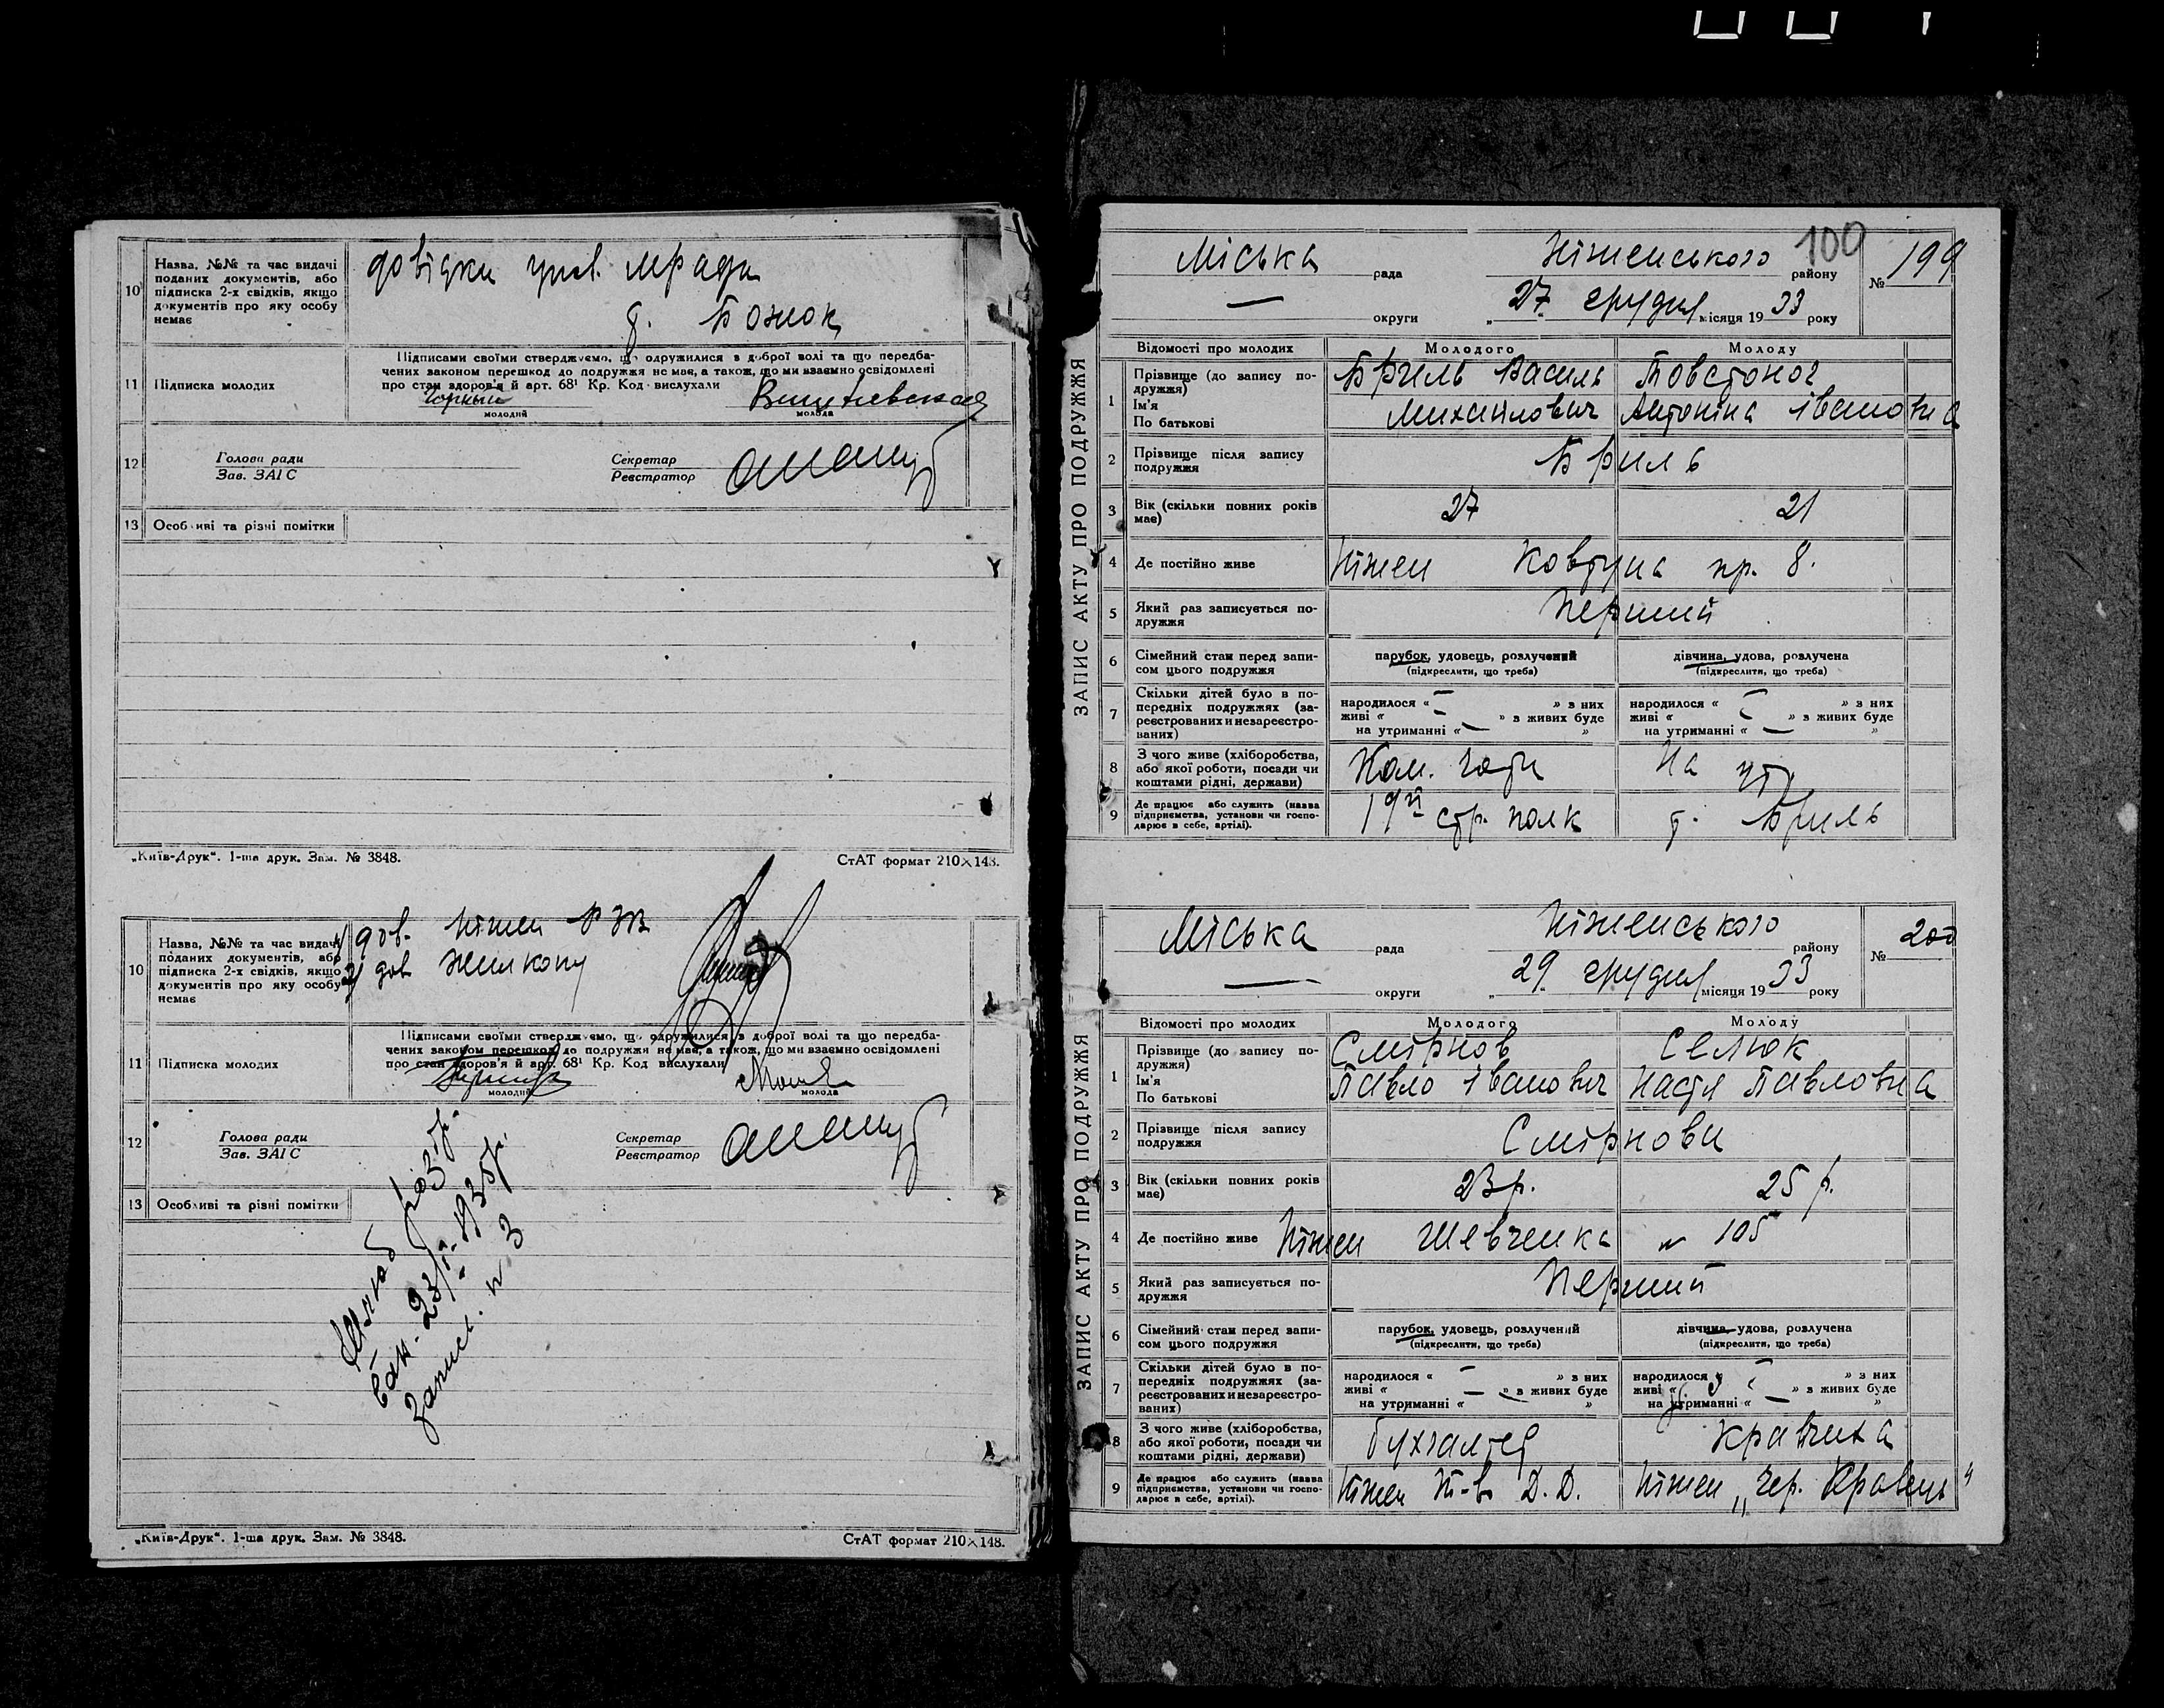 10 Назва, №№ та час видачі поданих документів, або підписка 2-х свідків, якщо документів про яку особу немає
довідки
мради
т. Божок
11 Підписка молодих
Підписами своїми стверджуємо, що одружилися з доброї волі та що передба-
чених законом перешкод до подружжя не має, а також, що ми взаємно освідомлені
про стан здоров'я й арт. 68¹ Кр. Код. вислухали
молодий
молода
12 Голова ради
Зав. ЗАГС
Секретар
Реєстратор
13 Особливі та різні помітки
„Київ-Друк“. 1-ша друк. Зам. № 3848.
СтАТ формат 210×148.
10 Назва, №№ та час видачі поданих документів, або підписка 2-х свідків, якщо документів про яку особу немає
1/ дов. Ніжен
2/ дов
11 Підписка молодих
Підписами своїми стверджуємо, що одружилися з доброї волі та що передба-
чених законом перешкод до подружжя не має, а також, що ми взаємно освідомлені
про стан здоров'я й арт. 68¹ Кр. Код вислухали
молодий
молода
12 Голова ради
Зав. ЗАГС
Секретар
Реєстратор
13 Особливі та різні помітки
Шлюб
1935р.
запис. № 3
„Київ-Друк“. 1-ша друк. Зам. № 3848.
СтАТ формат 210×148.
100
ЗАПИС АКТУ ПРО ПОДРУЖЖЯ
Міська рада Ніженського району № 199
— округи „27 грудня місяця 1933 року
Відомості про молодих Молодого Молоду
1 Прізвище (до запису подружжя) Ім'я По батькові
Бриль Василь Товстоног
Михайлович Антоніна Івановна
2 Прізвище після запису подружжя Бриль
3 Вік (скільки повних років має) 27 21
4 Де постійно живе Ніжен Ковтуна пр. 8.
5 Який раз записується подружжя Перший
6 Сімейний стан перед записом цього подружжя
парубок, удовець, розлучений дівчина, удова, розлучена
(підкреслити, що треба) (підкреслити, що треба)
7 Скільки дітей було в попередніх подружжях (зареєстрованих и незареєстрованих)
народилося « — » з них народилося « — » з них
живі « — » з живих буде живі « — » з живих буде
на утриманні « — » на утриманні « — »
8 З чого живе (хліборобства, або якої роботи, посади чи коштами рідні, держави)
Ком. На ут
9 Де працює або служить (назва підприємства, установи чи господарює в себе, артілі).
19й стр. полк т. Бриль
ЗАПИС АКТУ ПРО ПОДРУЖЖЯ
Міська рада Ніженського району № 200
— округи „29 грудня місяця 1933 року
Відомості про молодих Молодого Молоду
1 Прізвище (до запису подружжя) Ім'я По батькові
Смірнов Селюк
Павло Іванович Настя Павловна
2 Прізвище після запису подружжя Смірнови
3 Вік (скільки повних років має) 23 р. 25 р.
4 Де постійно живе Ніжен Шевченка № 105
5 Який раз записується подружжя Перший
6 Сімейний стан перед записом цього подружжя
парубок, удовець, розлучений дівчина, удова, розлучена
(підкреслити, що треба) (підкреслити, що треба)
7 Скільки дітей було в попередніх подружжях (зареєстрованих и незареєстрованих)
народилося « — » з них народилося « — » з них
живі « — » з живих буде живі « » з живих буде
на утриманні « » на утриманні « — »
8 З чого живе (хліборобства, або якої роботи, посади чи коштами рідні, держави)
бухгалтер кравчиха
9 Де працює або служить (назва підприємства, установи чи господарює в себе, артілі).
Ніжен Т-во Д.Д. Ніжен „Чер. Кравець"